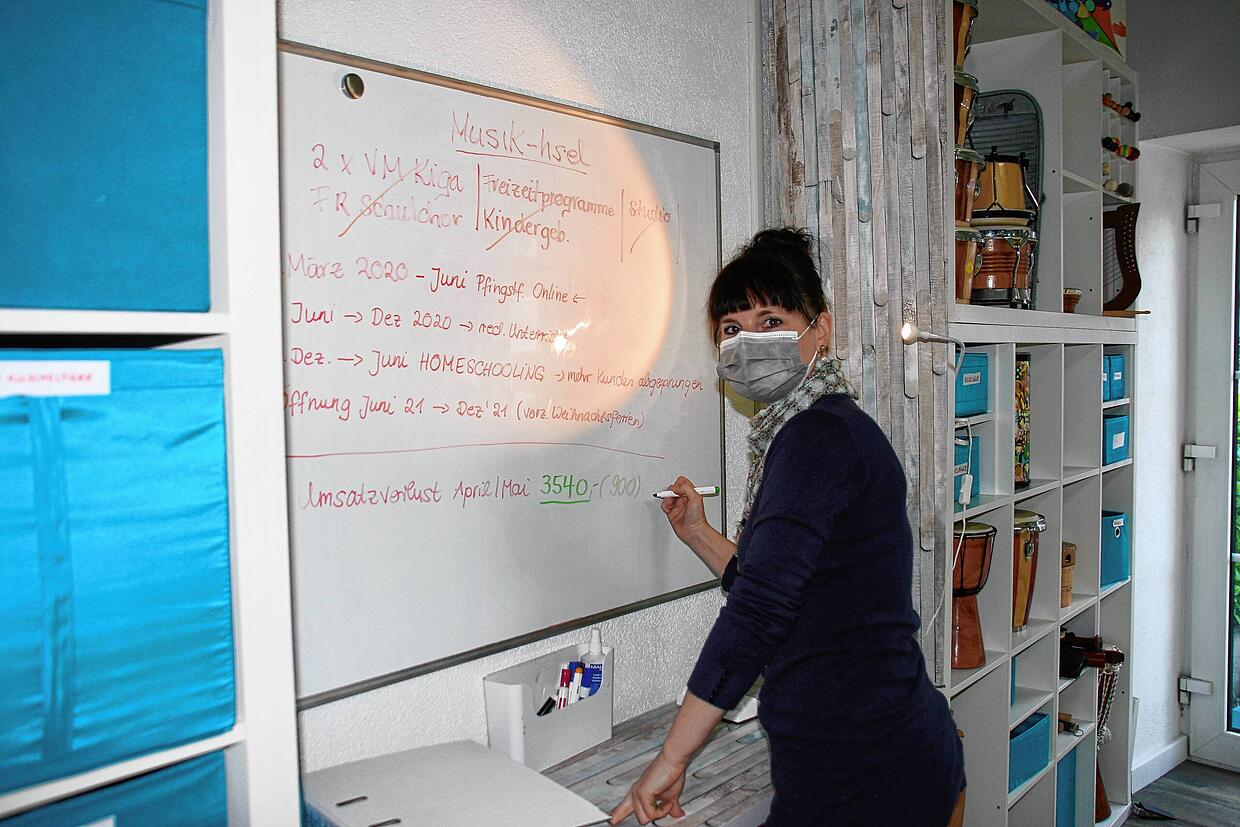 Musik-hsel
2 x VM Kiga | Freizeitprogramme | Studio
FR Schulchor | Kindergeb.
März 2020 - Juni Pfingstf. Online ←
Juni → Dez 2020 → red. Unterricht
Dez. → Juni HOMESCHOOLING → mehr Kunden abgesprungen
Öffnung Juni 21 → Dez '21 (vorz. Weihnachtsferien)
Umsatzverlust April/Mai 3540,- (900)